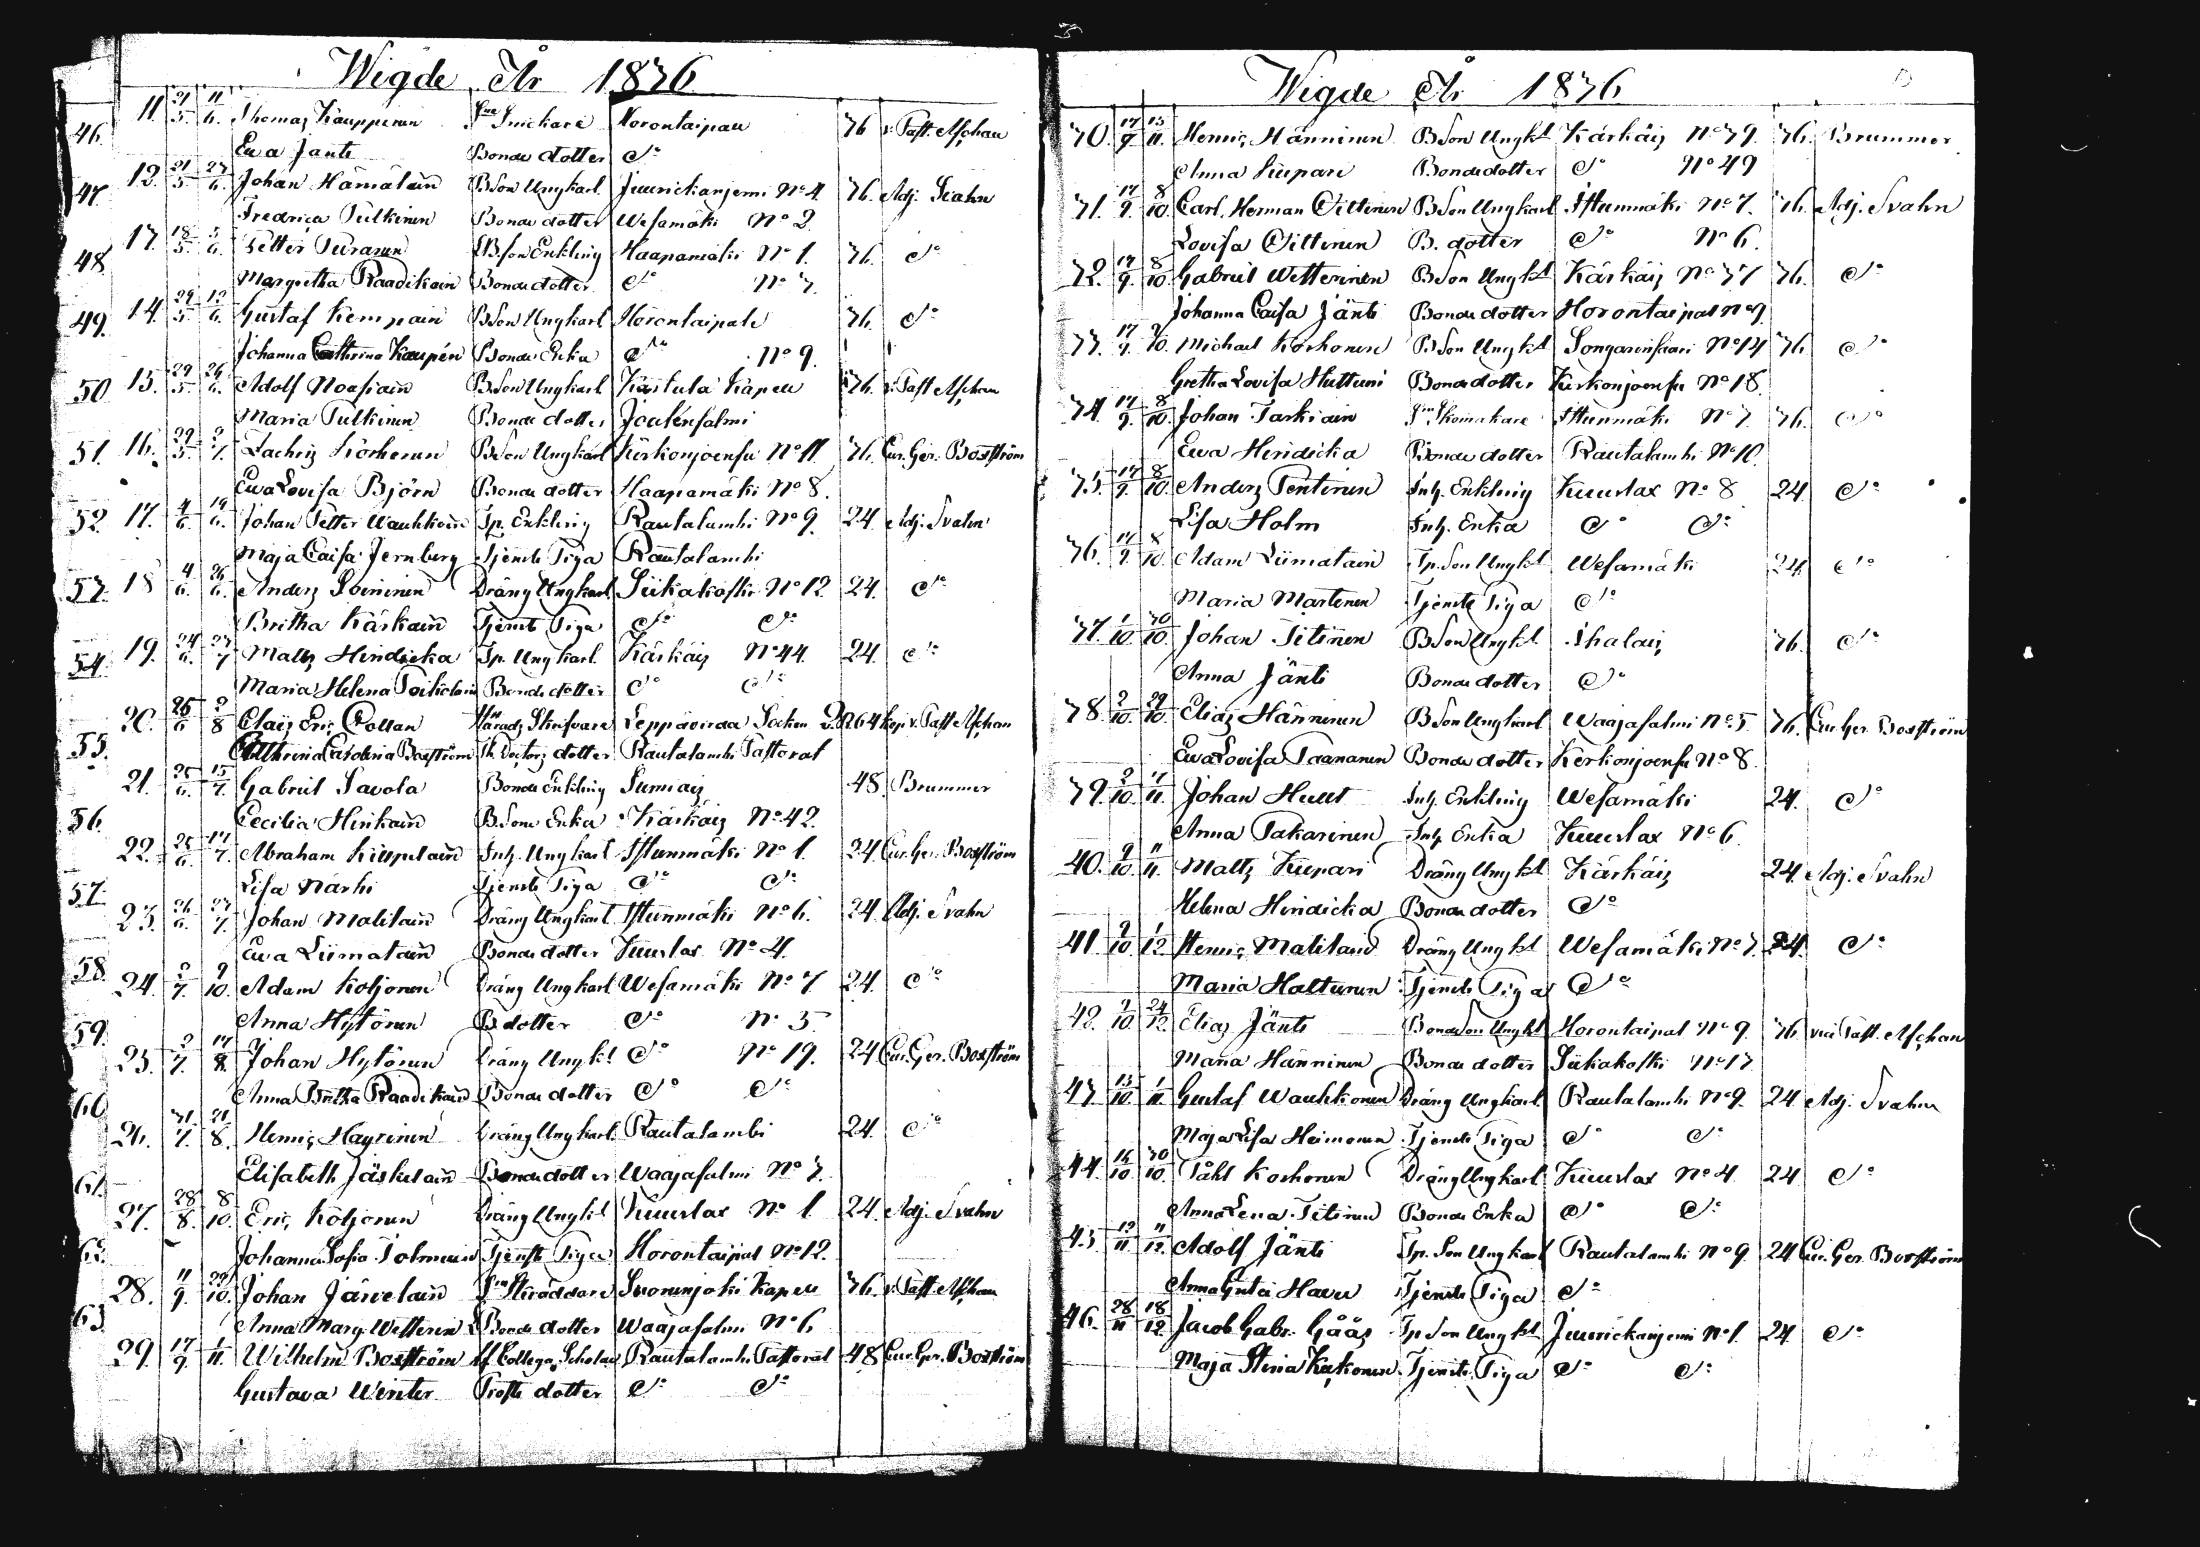 Wigde År 1836
46. 11. 21/5. 11/6. Thomas Kauppinen Snickare Horontaipale 36
Ewa Jänti Bonde dotter do
47 12. 21/5. 27/6. Johan Hämäläin BSon Ungkarl Jäurickaniemi No 4 36. Adj. Svahn
Fredrica Pulkinen Bonde dotter Wesamäki No 2.
48 13. 18/5. 5/6. Petter Turanen BSon Enkling Haapamäki No 1. 36. do
Margretha Raadikain Bonde dotter do No 3.
49. 14. 29/5. 12/6. Gustaf Kempain BSon Ungkarl Horontaipale 36. do
Johanna Cathrina Bonde Enka do No 9.
50 15. 29/5. 26/6. Adolf Noasiain BSon Ungkarl Kapell 36.
Maria Pulkinen Bonde dotter
51. 16. 29/5. 3/7. Zachris Korhonen BSon Ungkarl Kerkonjoensu No 11. 36. Cur. Ger. Boxström
Ewa Lovisa Björn Bonde dotter Haapamäki No 8.
52 17. 4/6. 19/6. Johan Petter Wauhkoin Tp. Enkling Rautalambi No 9. 24. Adj. Svahn
Maja Caisa Jernberg Tjenste Piga Rautalambi
53. 18 4/6. 26/6. Anders Soininen Dräng Ungkarl Siikakoski No 12 24. do
Britha Kärkäin Tjenste Piga do do
54. 19. 24/6. 23/7 Matts Hindricka Tp. Ungkarl. Kärkäis No 44. 24. do
Maria Helena Bonde dotter do do
55. 20. 25/6 2/8 Clas Eric Collan Härads Skrifvare Leppävirda Socken
Cathrina Carolina Boxström dotter Rautalambi Pastorat
21. 25/6. 15/7. Gabriel Savola Bonde Enkling Sumiais 48. Brummer
56. Cecilia Hinkain BSons Enka Kärkäis No 42.
22. 25/6. 17/7. Abraham Inh. Ungkarl Istunmäki No 1. 24 Cur. Ger. Boxström
57. Lisa Närhi Tjenste Piga do do
23. 26/6. 23/7. Johan Malilain Dräng Ungkarl Istunmäki No 6. 24. Adj. Svahn
Ewa Liimatain Bonde dotter Kuuslax No 4.
58. 24. 2/7. 9/10. Adam Koljonen Dräng Ungkarl Wesamäki No 7 24. do
Anna Hytönen B. dotter do No 5
59. 25. 3/7. 14/8. Johan Hytönen Dräng Ungkl do No 19. 24 Cur. Ger. Boxström
Anna Britha Raadikain Bonde dotter do do
60 26. 31/7. 21/8. Henric Häyrinen Dräng Ungkarl Rautalambi 24. do
Elisabeth Jäskelain Bonde dotter Waajasalmi No 3.
61. 27. 28/8. 8/10. Eric Koljonen Dräng Ungkl Kuuslax No 1 24. Adj. Svahn
Johanna Sofia Tolmunin Tjenste Piga Horontaipal No 12.
28. 11/9. 29/10. Johan Järvelain Skräddare Kapell 36.
63 Anna Marg. Wetterin Bonde dotter Waajasalmi No 6
29. 17/9. 1/11. Wilhelm Boxström Collega Scholae Rautalambi Pastorat 48 Cur. Ger. Boxström
Gustava Winter Prosts dotter do do
Wigde År 1836
30. 17/9. 13/11. Henric Hänninen BSon Ungkl Kärkäis No 39. 36. Brummer
Anna Kiipari Bonde dotter do No 49
31. 17/9. 8/10. Carl Herman Oittinen BSon Ungkarl Istunmäki No 7. 36. Adj. Svahn
Lovisa Oittinen B. dotter do No 6.
32. 17/9. 8/10. Gabriel Wetterinen BSon Ungkl Kärkäis No 37 36. do
Johanna Caisa Jänti Bonde dotter Horontaipal No 9
33. 17/9. 9/10. Michael Korhonen BSon Ungkl Songarinsaari No 14 36 do
Gretha Lovisa Huttuni Bonde dotter Kerkonjoensu No 18.
34. 17/9. 8/10. Johan Tarkiain Skomakare Istunmäki No 7. 36. do
Ewa Hindricka Bonde dotter Rautalambi No 10.
35. 17/9. 8/10. Anders Pentinen Inh. Enkling Kuuslax No 8 24. do
Lisa Holm Inh. Enka do do
36. 17/9. 8/10. Adam Liimatain Tp. Son Ungkl Wesamäki 24. do
Maria Martinen Tjenste Piga do
37. 1/10. 30/10. Johan Titinen BSon Ungkl Ihalais 36. do
Anna Jänti Bonde dotter do
38. 2/10. 29/10. Elias Hänninen BSon Ungkarl Waajasalmi No 5 36. Cur. Ger. Boxström
Ewa Lovisa Taananen Bonde dotter Kerkonjoensu No 8.
39. 2/10. Johan Inh. Enkling Wesamäki 24. do
Anna Takarinen Inh Enka Kuuslax No 6.
40. 9/10. Matts Kiipari Dräng Ungkl Kärkäis 24. Adj. Svahn
Helena Hindricka Bonde dotter do
41 9/10. 1/12. Henric Malilain Dräng Ungkl Wesamäki No 3. 24. do
Maria Halturin Tjenste Piga do
42. 9/10. 24/12. Elias Jänti Bonde Son Ungkl Horontaipal No 9. 36
Maria Hänninen Bonde dotter Siikakoski No 13
43 15/10. 1/11. Gustaf Wauhkonen Dräng Ungkarl Rautalambi No 9. 24 Adj. Svahn
Maja Lisa Heimonen Tjenste Piga do do
44. 16/10. 30/10. Påhl Korhonen Dräng Ungkarl Kuuslax No 4 24 do
Anna Lena Titinen Bonde Enka do do
45 13/11. 11/12. Adolf Jänti Tp. Son Ungkarl Rautalambi No 9. 24 Cur. Ger. Boxström
Anna Greta Tjenste Piga do
46. 28/11. 18/12. Jacob Gabr. Gåås Tp Son Ungkl No 1. 24 do
Maja Stina Kakonen Tjenste Piga do do